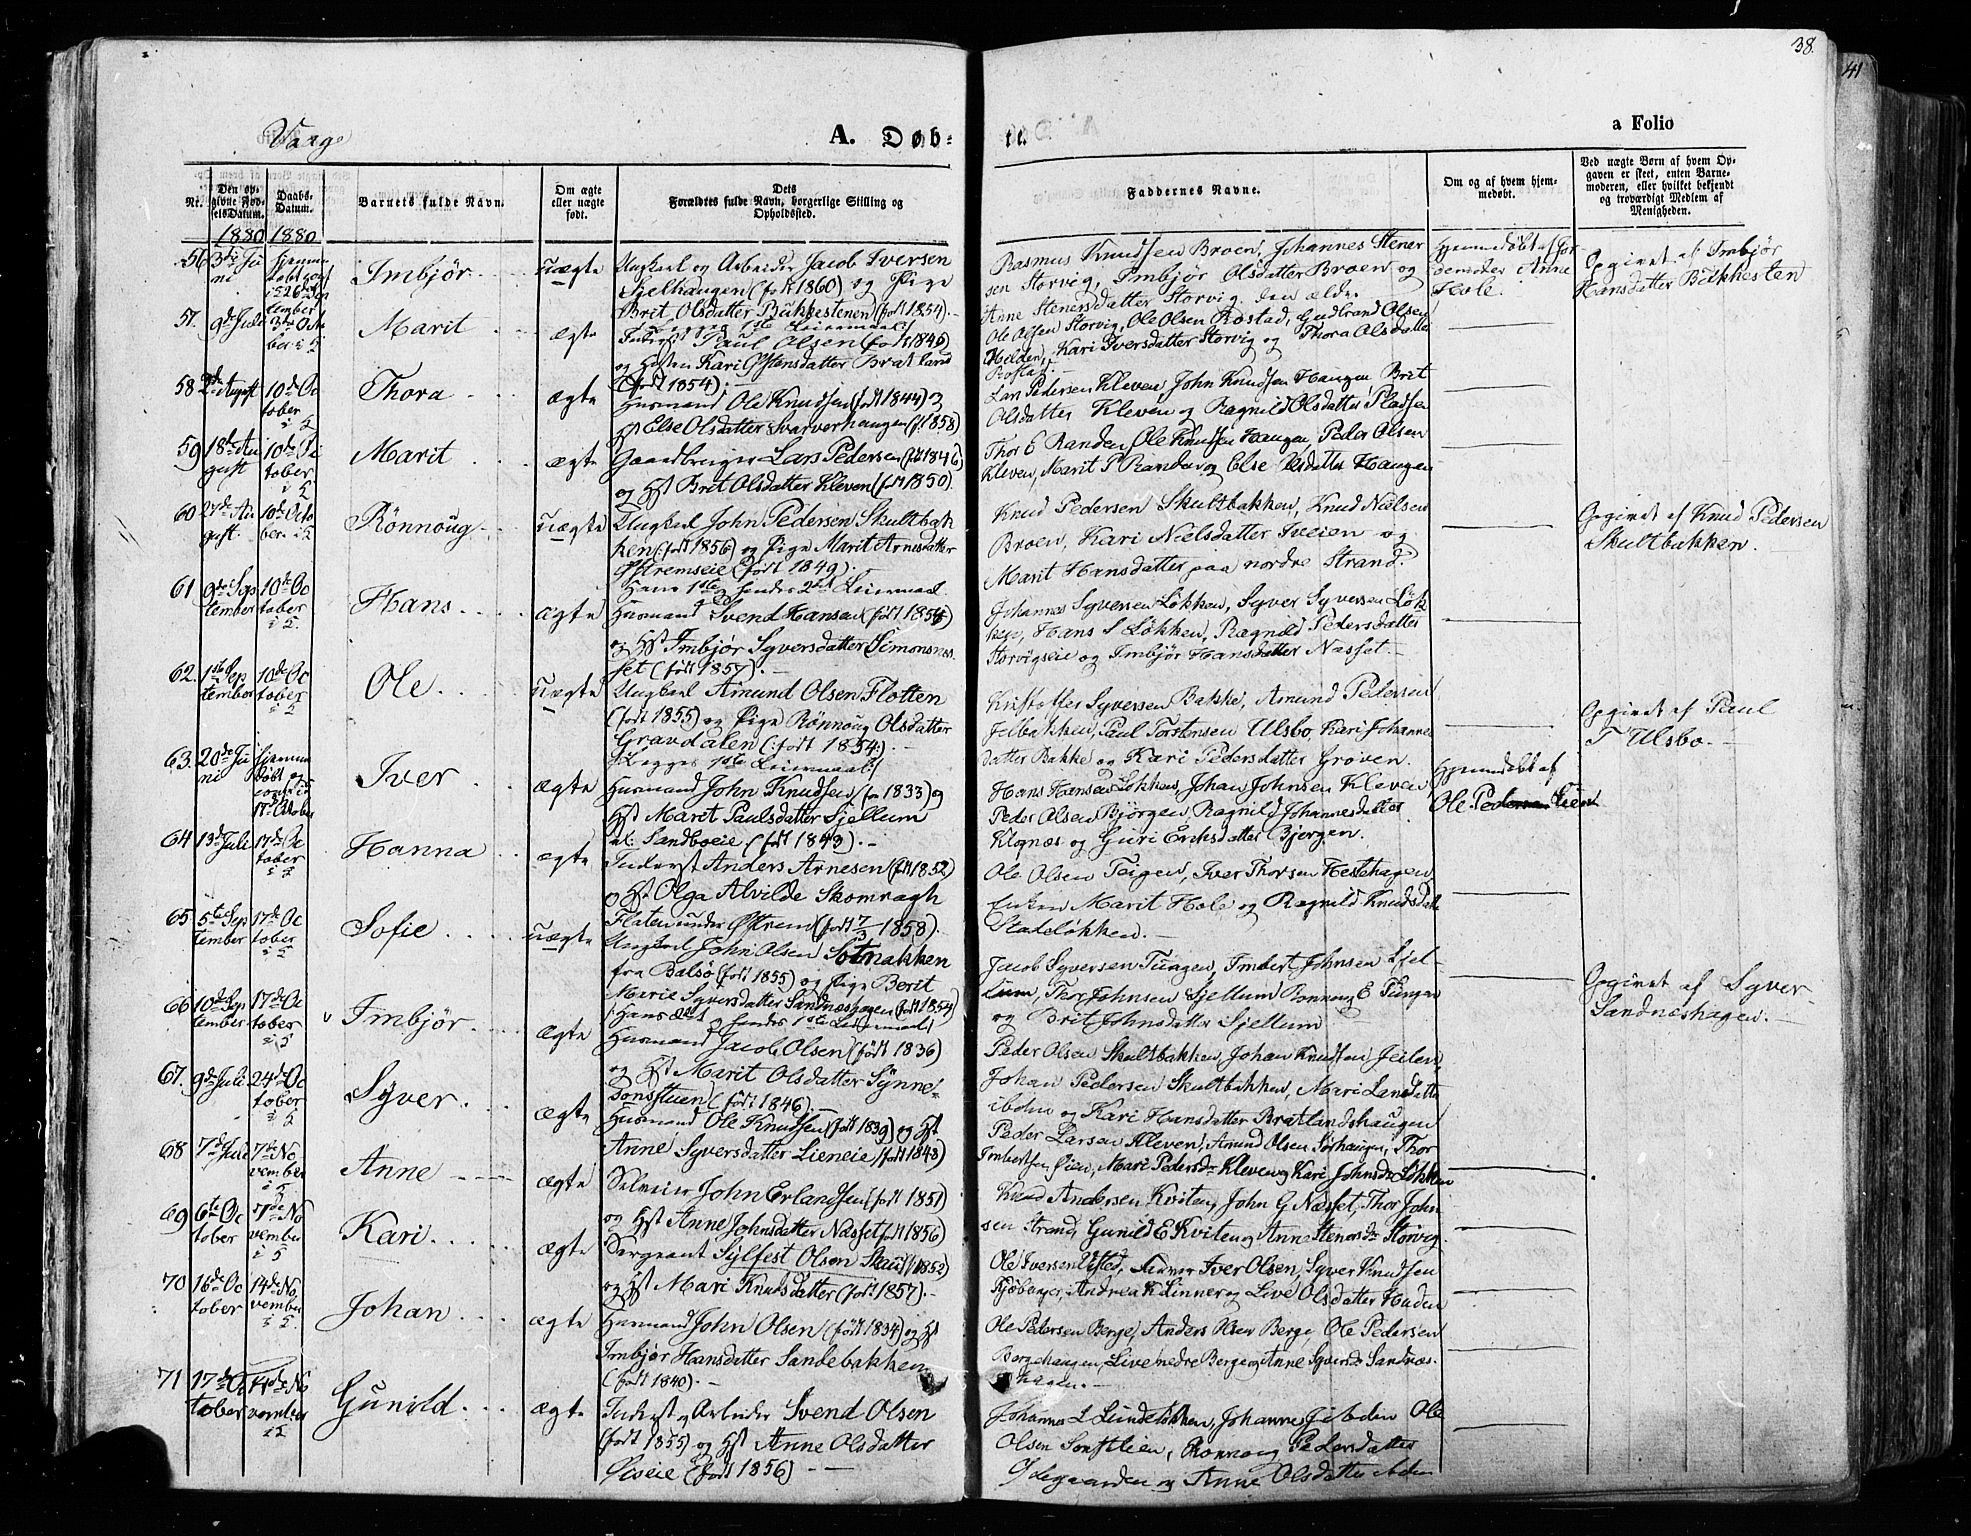 38.
41
Vaage
A. Døb-
te.
a Folio
Nr.
Den op-
givne Fød-
selsDatum.
Daabs-
Datum.
Barnets fulde Navn.
Om ægte
eller uægte
født.
Dets
Forældres fulde Navn, borgerlige Stilling og
Opholdssted.
Faddernes Navne.
Om og af hvem hjem-
medøbt.
Ved uægte Børn af hvem Op-
gaven er skeet, enten Barne-
moderen, eller hvilket bekjendt
og troværdigt Medlem af
Menigheden.
1880 1880
56 3die Ju
ni
Imbjör
uægte
Ungkarl og Arbeider Jacob Iversen
Sjelhaugen (født 1860) og Pige
Brit Olsdatter Bukkestenen (født 1854).
Rasmus Knudsen Broen, Johannes Stener
sen Storvig, Imbjör Olsdatter Broen og
Anne Stenersdatter Storvig. den ældre
Hjemmedøbt af Jor
demoder Anne
Hole.
Opgivet af Imbjör
Hansdatter Bukkesten
57. 9de Juli 3die Octo
ber i
Marit
ægte
Inderst Paul Olsen (født 1846)
og Hstru Kari Østensdatter Bratland
(født 1854).
Ole Olsen Storvig, Ole Olsen Rostad, Gudbrand Olsen
Helden, Kari Iversdatter Storvig og Thora Olsdatter
Rostad.
58 2den August 10de Oc
tober
Thora
ægte
Husmand Ole Knudsen (født 1844) og
Hst Else Olsdatter Svarverhaugen (f. 1858)
Lars Pedersen Kleven, John Knudsen Haugen Brit
Olsdatter Kleven og Ragnild Olsdatter Pladsen
59 18de Au
gust
10de Oc
tober
Marit
ægte
Gaardbruger Lars Pedersen (født 1846)
og Hst Brit Olsdatter Kleven (født 1850).
Thor E Randen, Ole Knudsen Haugen, Peder Olsen
Kleven, Marit P Randen og Else Olsdatter Haugen
60 27de Au
gust.
10de Octo
ber i
Rönnoug
uægte
Ungkarl John Pedersen Skultbak
ken (født 1856) og Pige Marit Arnesdatter
Østremseie (født 1849).
Hans 1ste og hendes 2det Leiermaal
Knud Pedersen Skultbakken, Knud Nielsen
Broen, Kari Nielsdatter Sveien og
Marit Hansdatter paa nordre Strand.
Opgivet af Knud Pedersen
Skultbakken.
61 9de Sep
tember
10de Oc
tober
Hans
ægte
Husmand Svend Hansen (født 1854)
og Hst Imbjør Syversdatter Simonsnæs
set (født 1857).
Johannes Syversen Løkken, Syver Syversen Løk
ken, Hans S Løkken, Ragnild Pedersdatter
Storvigseie og Imbjør Hansdatter Næsset.
62. 1ste Sep
tember
10de Oc
tober
Ole
uægte
Ungkarl Amund Olsen Flotten
(født 1855) og Pige Rönnoug Olsdatter
Gravdalen (født 1854).
Begges 1ste Leiermaal
Kristoffer Syversen Bakke, Amund Pedersen
Jelbakken, Paul Torstensen Ulsbo, Kari Johannes
datter Bakke og Kari Pedersdatter Grøven.
Opgivet af Paul
T Ulsbo.
63. 20de Ju
ni
Hjemme
døbt og
17de October
Iver
ægte
Husmand John Knudsen (fø 1833) og
Hst Marit Paulsdatter Sjellum
Sandboeie (født 1843).
Hans Hansen Løkken, Johan Johnsen Kleven
Peder Olsen Björgen, Ragnild Johannesdatter
Klognæs og Guri Eriksdatter Bjørgen.
Hjemmedøbt af
Ole
64 13de Juli 17de Oc
tober
Hanna
ægte
Inderst Anders Arnesen (født 1852)
og Hst Olga Alvilde Skomragh
Flaten under Østrem (født 7/3 1858).
Ole Olsen Teigen, Iver Thorsen Hestehagen
Enken Marit Hole og Ragnild Knudsdatter
Stadeløkken.
65 5te Sep
tember
17de Oc
tober
Sofie
uægte
Ungkarl John Olsen Sotnakken
fra Balsø (født 1855) og Pige Berit
Marie Syversdatter Sandnæshagen (født 1854)
Jacob Syversen Tungen, Imbert Johnsen Sjel
lum, Thor Johnsen Sjellum Rönnoug E Tungen
og Brit Johnsdatter Sjellum
Opgivet af Syver
Sandneshagen.
66 10de Sep
tember
17de Oc
tober
Imbjör
ægte
Husmand Jacob Olsen (født 1836)
og Hst Marit Olsdatter Synne
(født 1846).
Peder Olsen Skultbakken, Johan Knudsen
Johan Pedersen Skultbakken, Mari Larsdatter
ibden og Kari Hansdatter Bratlandshaugen
67. 9de Juli 24de Oc
tober
Syver
ægte
Husmand Ole Knudsen (født 1839) og Hst
Anne Syversdatter Lieneie (født 1843)
Peder Larsen Kleven, Amund Olsen Sørhaugen, Thor
Imbertsen Øien, Mari Pedersdr Kleven og Kari Johnsdr Løkken
68 7de Juli 7de No
vember
Anne
ægte
John Erlandsen (født 1851)
og Hst Anne Johnsdatter Næsset født 1856)
Knud Andersen Kviten, John G Næsset, Thor John
sen Strand, Gunild E Kviten og Anne Stenersdr Storvig.
69 6te Oc
tober
7de No
vember
Kari
ægte
Sergeant Sylfest Olsen Skaug (f 1852)
og Hst Mari Knudsdatter (født 1857).
Ole Iversen Ulsted, Iver Olsen, Syver Knudsen
Andrea K Linner og Live Olsdatter Haden
70 16de Oc
tober
14de No
vember
Johan
ægte
Husmand John Olsen (født 1834) og Hst
Imbjør Hansdatter Sandebakken
(født 1840).
Ole Pedersen Berge, Anders Olsen Berge, Ole Pedersen
Bergehaugen, Live nedre Berge og Anne Syversdr Sandnæs
hagen.
71 17de Oc
tober
14de No
vember
Gunild
ægte
Inderst og Arbeider Svend Olsen
(født 1855) og Hst Anne Olsdatter
Øiseie (født 1856)
Johannes L Lundeløkken, Johannes J ibden Ole
Olsen Sontlien, Rønnoug Pedersdatter
Ødegaarden og Anne Olsdatter ibden